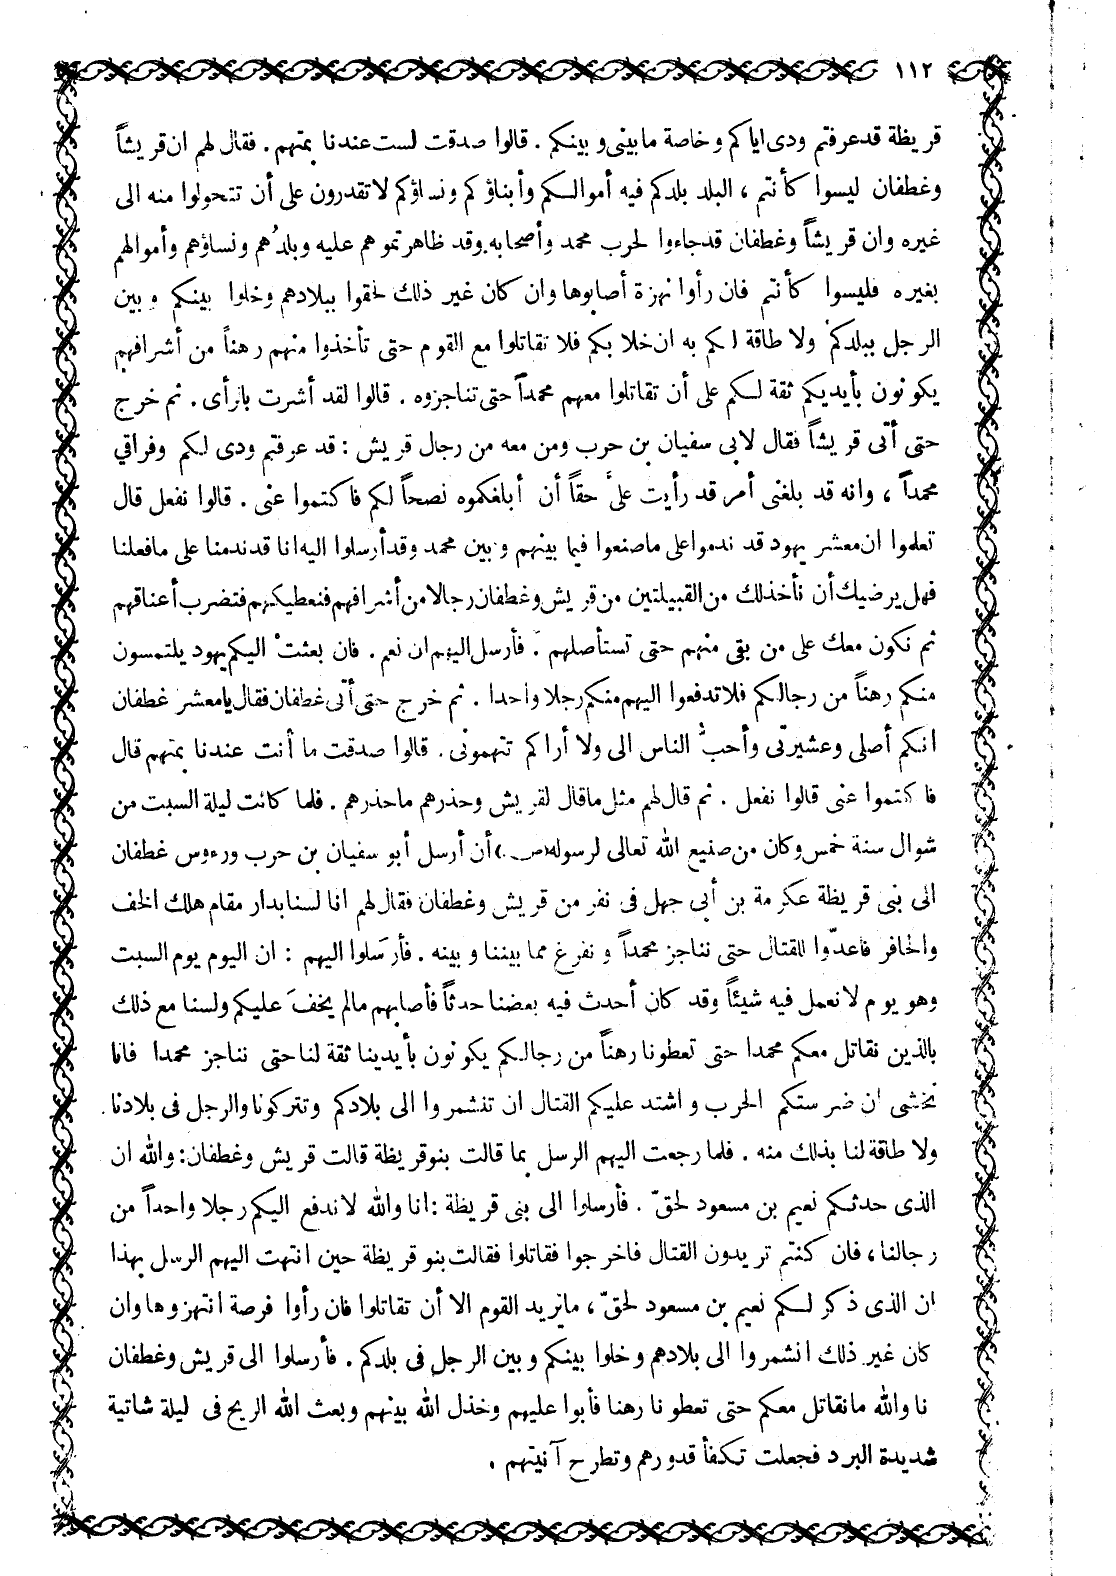 ١١٢
قريظة قدعرفتم ودى اياكم وخاصة مابينى وبينكم . قالوا صدقت لست عندنا بمتهم . فقال لهم ان قريشاً
وغطفان ليسوا كأنتم ، البلد بلدكم فيه أموالكم وأبناؤكم ونساؤكم لاتقدرون على أن تتحولوا منه الى
غيره وان قريشاً وغطفان قدجاءوا لحرب محمد وأصحابه وقد ظاهرتموهم عليه وبلدُهم ونساؤهم وأموالهم
بغيره فليسوا كأنتم فان رأوا نهزة أصابوها وان كان غير ذلك لحقوا ببلادهم وخلوا بينكم وبين
الرجل ببلدكم ولا طاقة لكم به ان خلا بكم فلا تقاتلوا مع القوم حتى تأخذوا منهم رهناً من أشرافهم
يكونون بأيديكم ثقة لكم على أن تقاتلوا معهم محمداً حتى تناجزوه . قالوا لقد أشرت بالرأى . ثم خرج
حتى أتى قريشاً فقال لابى سفيان بن حرب ومن معه من رجال قريش : قد عرفتم ودى لكم وفراقي
محمداً ، وانه قد بلغنى أمر قد رأيت علىَّ حقاً أن أبلغكموه نصحاً لكم فاكتموا عنى . قالوا نفعل قال
تعلموا ان معشر يهود قد ندموا على ماصنعوا فيما بينهم وبين محمد وقد أرسلوا اليه انا قد ندمنا على مافعلنا
فهل يرضيك أن نأخذلك من القبيلتين من قريش وغطفان رجالا من أشرافهم فنعطيكهم فتضرب أعناقهم
ثم نكون معك على من بقى منهم حتى تستأصلهم . فأرسل اليهم ان نعم . فان بعثت اليكم يهود يلتمسون
منكم رهناً من رجالكم فلاتدفعوا اليهم منكم رجلا واحدا . ثم خرج حتى أتى غطفان فقال يا معشر غطفان
انكم أصلى وعشيرتى وأحبُّ الناس الى ولا أراكم تتهمونى . قالوا صدقت ما أنت عندنا بمتهم قال
فاكتموا عنى قالوا نفعل . ثم قال لهم مثل ماقال لقريش وحذرهم ماحذرهم . فلما كانت ليلة السبت من
شوال سنة خمس وكان من صنيع الله تعالى لرسوله (ص) أن أرسل أبو سفيان بن حرب ورءوس غطفان
الى بنى قريظة عكرمة بن أبى جهل فى نفر من قريش وغطفان فقال لهم انا لسنا بدار مقام هلك الخف
والحافر فاعدّوا للقتال حتى نناجز محمداً ونفرغ مما بيننا وبينه . فأرسَلوا اليهم : ان اليوم يوم السبت
وهو يوم لانعمل فيه شيئاً وقد كان أحدث فيه بعضنا حدثاً فأصابهم مالم يخفَ عليكم ولسنا مع ذلك
بالذين نقاتل معكم محمدا حتى تعطونا رهناً من رجالكم يكونون بأيدينا ثقة لنا حتى نناجز محمدا فانا
نخشى ان ضرستكم الحرب واشتد عليكم القتال ان تنشمروا الى بلادكم وتتركونا والرجل فى بلادنا
ولا طاقة لنا بذلك منه . فلما رجعت اليهم الرسل بما قالت بنو قريظة قالت قريش وغطفان: والله ان
الذى حدثكم نعيم بن مسعود لحقّ . فأرسلوا الى بنى قريظة : انا والله لاندفع اليكم رجلا واحداً من
رجالنا ، فان كنتم تريدون القتال فاخرجوا فقاتلوا فقالت بنو قريظة حين انتهت اليهم الرسل بهذا
ان الذى ذكر لكم نعيم بن مسعود لحقّ ، مانريد القوم الا أن تقاتلوا فان رأوا فرصة انتهزوها وان
كان غير ذلك انشمروا الى بلادهم وخلوا بينكم وبين الرجل فى بلدكم . فأرسلوا الى قريش وغطفان
نا والله مانقاتل معكم حتى تعطونا رهنا فأبوا عليهم وخذل الله بينهم وبعث الله الريح فى ليلة شاتية
شديدة البرد فجعلت تكفأ قدورهم وتطرح آنيتهم .